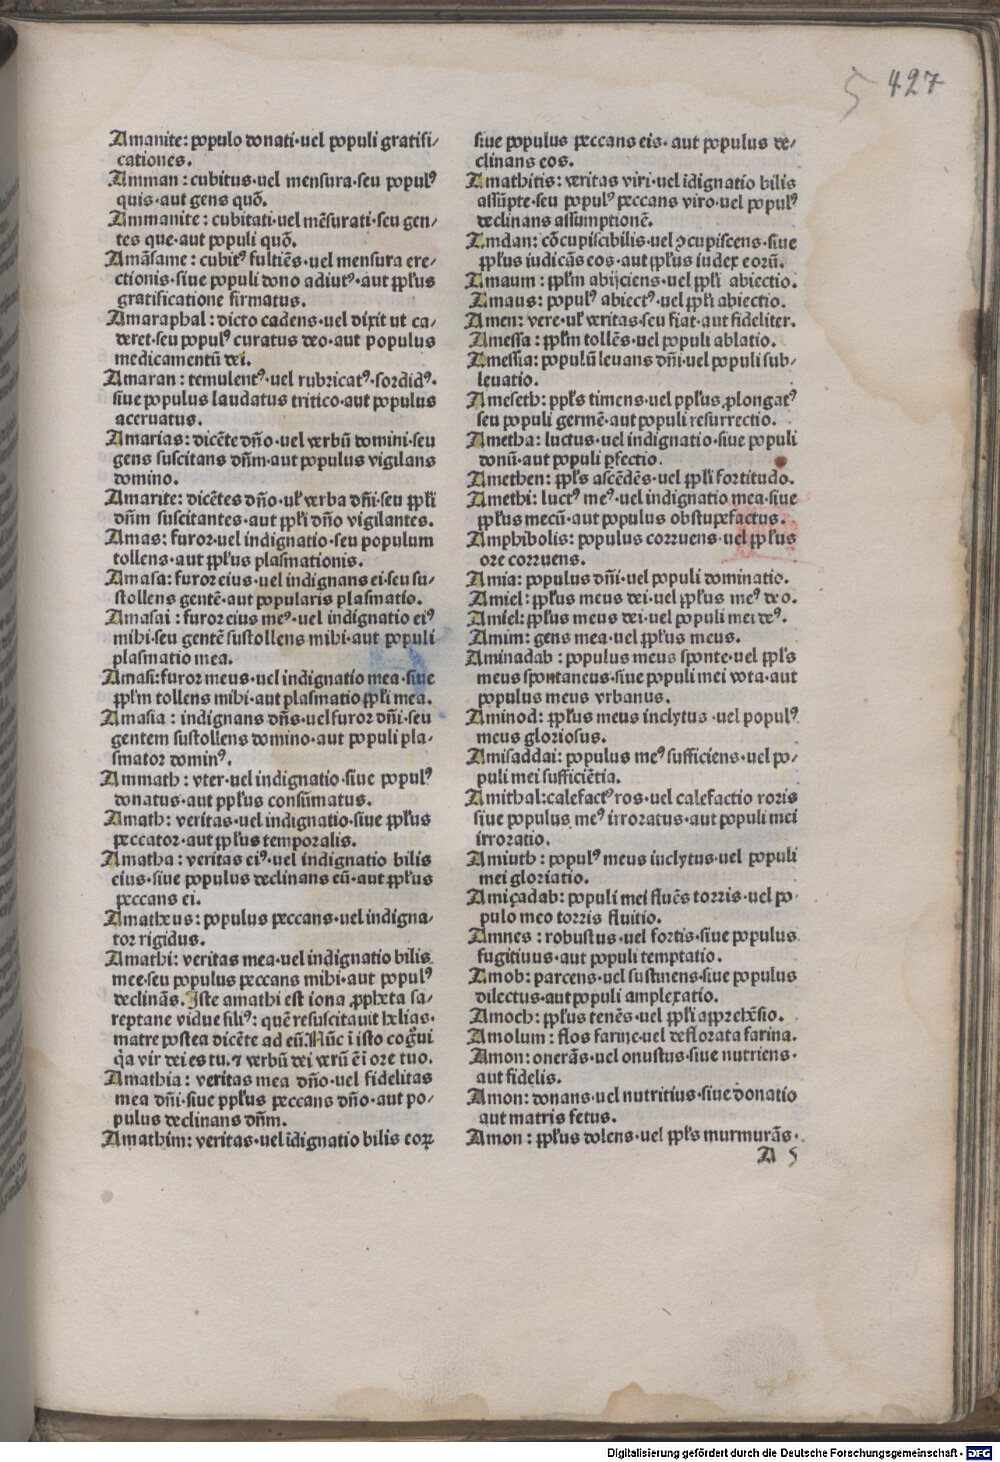 5 427
Amanite: populo donati·uel populi gratifi/
cationes.
Amman: cubitus·uel mensura·seu popul⁹
quis·aut gens quō.
Ammanite: cubitati·uel mēsurati·seu gen/
tes que·aut populi quō.
Amāsame: cubit⁹ fultiēs·uel mensura ere/
ctionis·siue populi dono adiut⁹·aut pp̄lus
gratificatione firmatus.
Amaraphal: dicto cadens·uel dixit ut ca/
deret·seu popul⁹ curatus deo·aut populus
medicamentū dei.
Amaran: temulent⁹·uel rubricat⁹·sordid⁹·
siue populus laudatus tritico·aut populus
aceruatus.
Amarias: dicēte dn̄o·uel verbū domini·seu
gens suscitans dn̄m·aut populus vigilans
domino.
Amarite: dicētes dn̄o·ul̄ verba dn̄i·seu pp̄li
dn̄m suscitantes·aut pp̄li dn̄o vigilantes.
Amas: furor·uel indignatio·seu populum
tollens·aut pp̄lus plasmationis.
Amasa: furor eius·uel indignans ei·seu su/
stollens gentē·aut popularis plasmatio.
Amasai: furor eius me⁹·uel indignatio ei⁹
mihi·seu gentē sustollens mihi·aut populi
plasmatio mea.
Amasi: furor meus·uel indignatio mea·siue
pp̄lm tollens mihi·aut plasmatio pp̄li mea.
Amasia: indignans dn̄s·uel furor dn̄i·seu
gentem sustollens domino·aut populi pla/
smator domin⁹.
Ammath: vter·uel indignatio·siue popul⁹
donatus·aut pp̄lus consūmatus.
Amath: veritas·uel indignatio·siue pp̄lus
peccator·aut pp̄lus temporalis.
Amatha: veritas ei⁹·uel indignatio bilis
eius·siue populus declinans eū·aut pp̄lus
peccans ei.
Amatheus: populus peccans·uel indigna/
tor rigidus.
Amathi: veritas mea·uel indignatio bilis
mee·seu populus peccans mihi·aut popul⁹
declinās. Iste amathi est iona ꝓpheta sa/
reptane vidue fili⁹: quē resuscitauit helias·
matre postea dicēte ad eū. Nūc ī isto cog͂ui
q̄a vir dei es tu.⁊ verbū dei verū ē ī ore tuo.
Amathia: veritas mea dn̄o·uel fidelitas
mea dn̄i·siue pp̄lus peccans dn̄o·aut po/
pulus declinans dn̄m.
Amathim: veritas·uel īdignatio bilis eoꝝ
siue populus peccans eis·aut populus de/
clinans eos.
Amathitis: veritas viri·uel īdignatio bilis
assūpte·seu popul⁹ peccans viro·uel popul⁹
declinans assumptionē.
Amdan: cōcupiscibilis·uel ꝯcupiscens·siue
pp̄lus iudicās eos·aut pp̄lus iudex eorū.
Amaum: pp̄lm abijciens·uel pp̄li abiectio.
Amaus: popul⁹ abiect⁹·uel pp̄li abiectio.
Amen: vere·ul̄ veritas·seu fiat·aut fideliter.
Amessa: pp̄lm tollēs·uel populi ablatio.
Amessia: populū leuans dn̄i·uel populi sub/
leuatio.
Ameseth: pp̄ls timens·uel pp̄lus ꝓlongat⁹
seu populi germē·aut populi resurrectio.
Ametha: luctus·uel indignatio·siue populi
donū·aut populi ꝑfectio.
Amethen: pp̄ls ascēdēs·uel pp̄li fortitudo.
Amethi: luct⁹ me⁹·uel indignatio mea·siue
pp̄lus mecū·aut populus obstupefactus.
Amphibolis: populus corruens·uel pp̄lus
ore corruens.
Amia: populus dn̄i·uel populi dominatio.
Amiel: pp̄lus meus dei·uel pp̄lus me⁹ deo.
Amiel: pp̄lus meus dei·uel populi mei de⁹.
Amim: gens mea·uel pp̄lus meus.
Aminadab: populus meus sponte·uel pp̄ls
meus spontaneus·siue populi mei vota·aut
populus meus vrbanus.
Aminod: pp̄lus meus inclytus·uel popul⁹
meus gloriosus.
Amisaddai: populus me⁹ sufficiens·uel po/
puli mei sufficiētia.
Amithal: calefact⁹ ros·uel calefactio roris
siue populus me⁹ irroratus·aut populi mei
irroratio.
Amiuth: popul⁹ meus inclytus·uel populi
mei gloriatio.
Amiçadab: populi mei fluēs torris·uel po
pulo meo torris fluitio.
Amnes: robustus·uel fortis·siue populus
fugitiuus·aut populi temptatio.
Amob: parcens·uel sustinens·siue populus
dilectus·aut populi amplexatio.
Amoch: pp̄lus tenēs·uel pp̄li apprehēsio.
Amolum: flos farine·uel deflorata farina.
Amon: onerās·uel onustus·siue nutriens·
aut fidelis.
Amon: donans·uel nutritius·siue donatio
aut matris fetus.
Amon: pp̄lus dolens·uel pp̄ls murmurās·
A 5
Digitalisierung gefördert durch die Deutsche Forschungsgemeinschaft · DFG